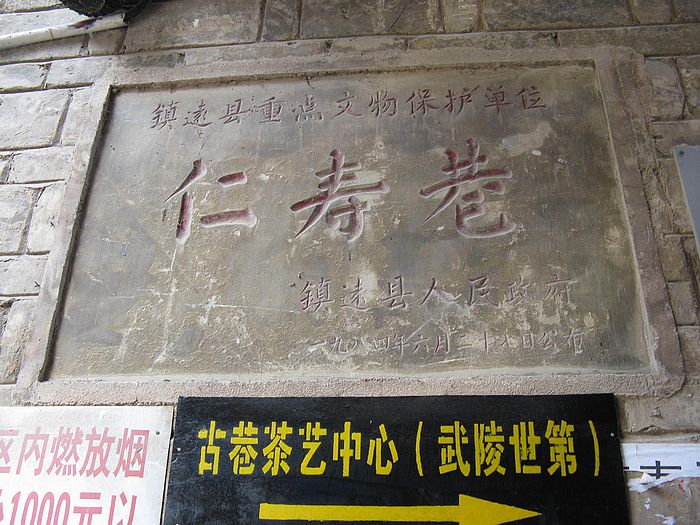 鎮远县重点文物保护单位
仁寿巷
鎮远县人民政府
一九八四年六月二十九日公布
区内燃放烟
1000元以
古巷茶艺中心（武陵世第）